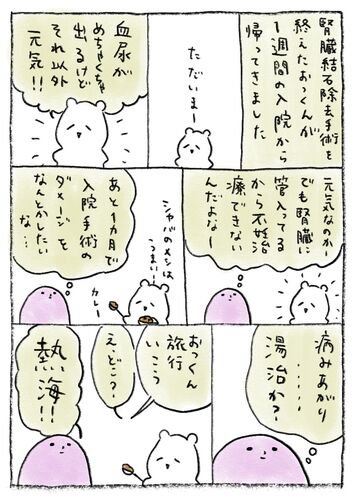 腎臓結石除去手術を
終えたおっくんが
1週間の入院から
帰ってきました
ただいまー
血尿が
めちゃくちゃ
出るけど
それ以外
元気!!
元気なのかー
でも腎臓に
管入ってる
から不妊治
療できない
んだよなー
シャバのメシは
うまい!
カレー
あと1カ月で
入院手術の
ダメージを
なんとかしたい
な…
病みあがり
……
湯治か?
おっくん
旅行
いこっ
え、どこ?
熱海!!